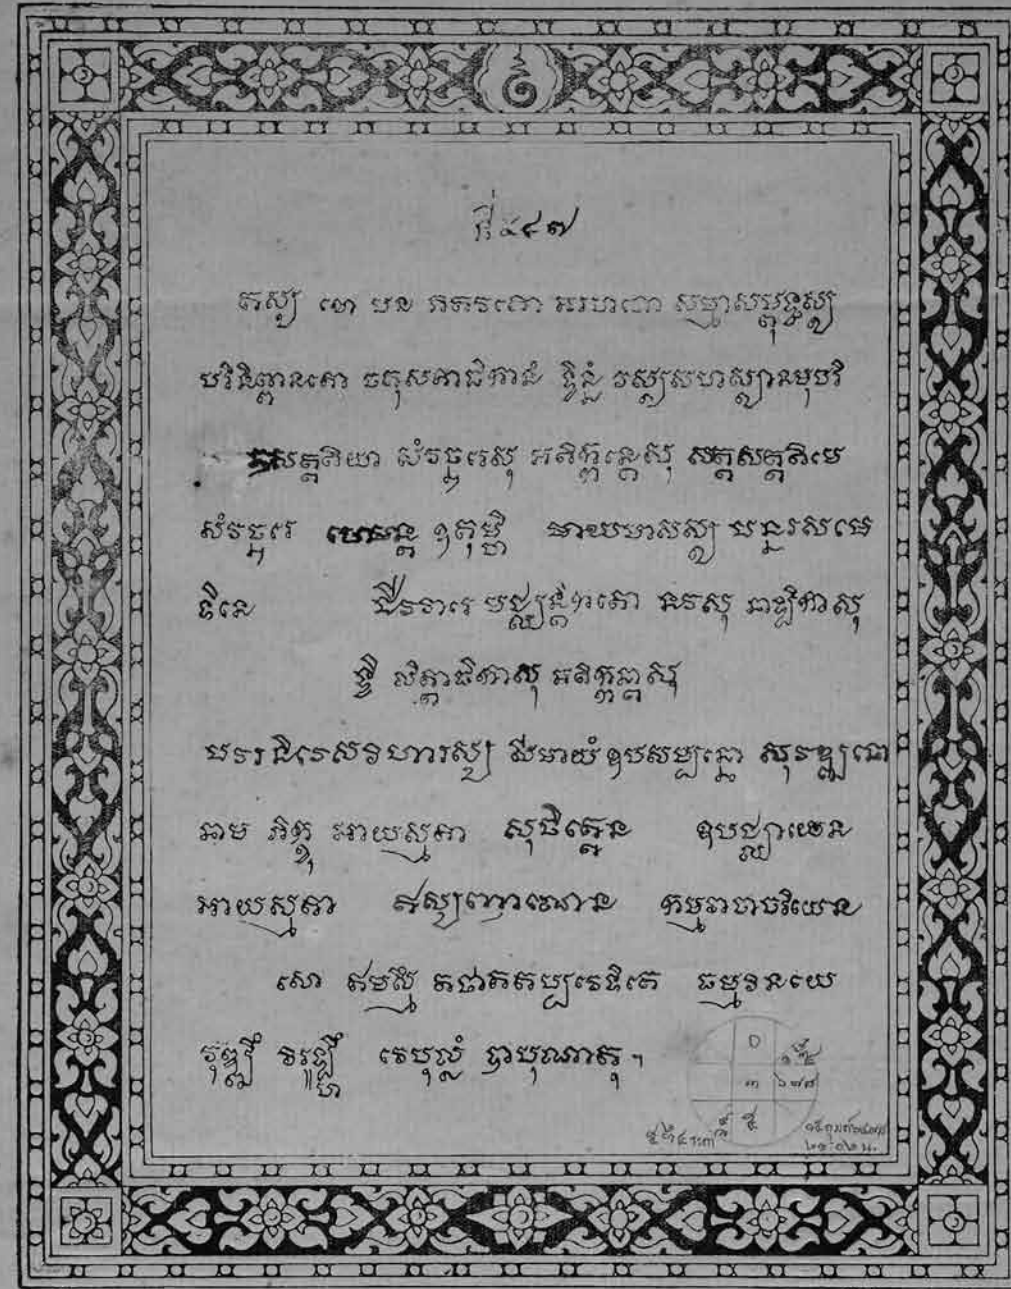 តស្ស ខោ បន ភគវតោ អរហតោ សម្មាសម្ពុទ្ធស្ស
បរិនិព្ពានតោ ចតុសតាធិកានំ ទ្វិន្នំ វស្សសហស្សានមុបរិ
សត្តតិយា សំវច្ឆរេសុ អតិក្កន្តេសុ សត្តសត្តតិមេ
សំវច្ឆរេ ហេមន្ត ឧតុម្ហិ មាឃមាសស្ស បន្នរសមេ
ទិនេ ជីវវារេ មជ្ឈន្តិកតោ នវសុ នាឡិកាសុ
ទ្វិ លិត្តាធិកាសុ អតិក្កន្តាសុ
បវរនិវេសវិហារស្ស សីមាយំ ឧបសម្បន្នោ សុវឌ្ឍនោ
នាម ភិក្ខុ អាយស្មតា សុចិត្តេន ឧបជ្ឈាយេន
អាយស្មតា កម្មវាចាចរិយេន
សោ ឥមស្មឹ តថាគតប្បវេទិតេ ធម្មវិនយេ
វុឌ្ឍឹ វិរូឡ្ហឹ វេបុល្លំ បាបុណាតុ ។